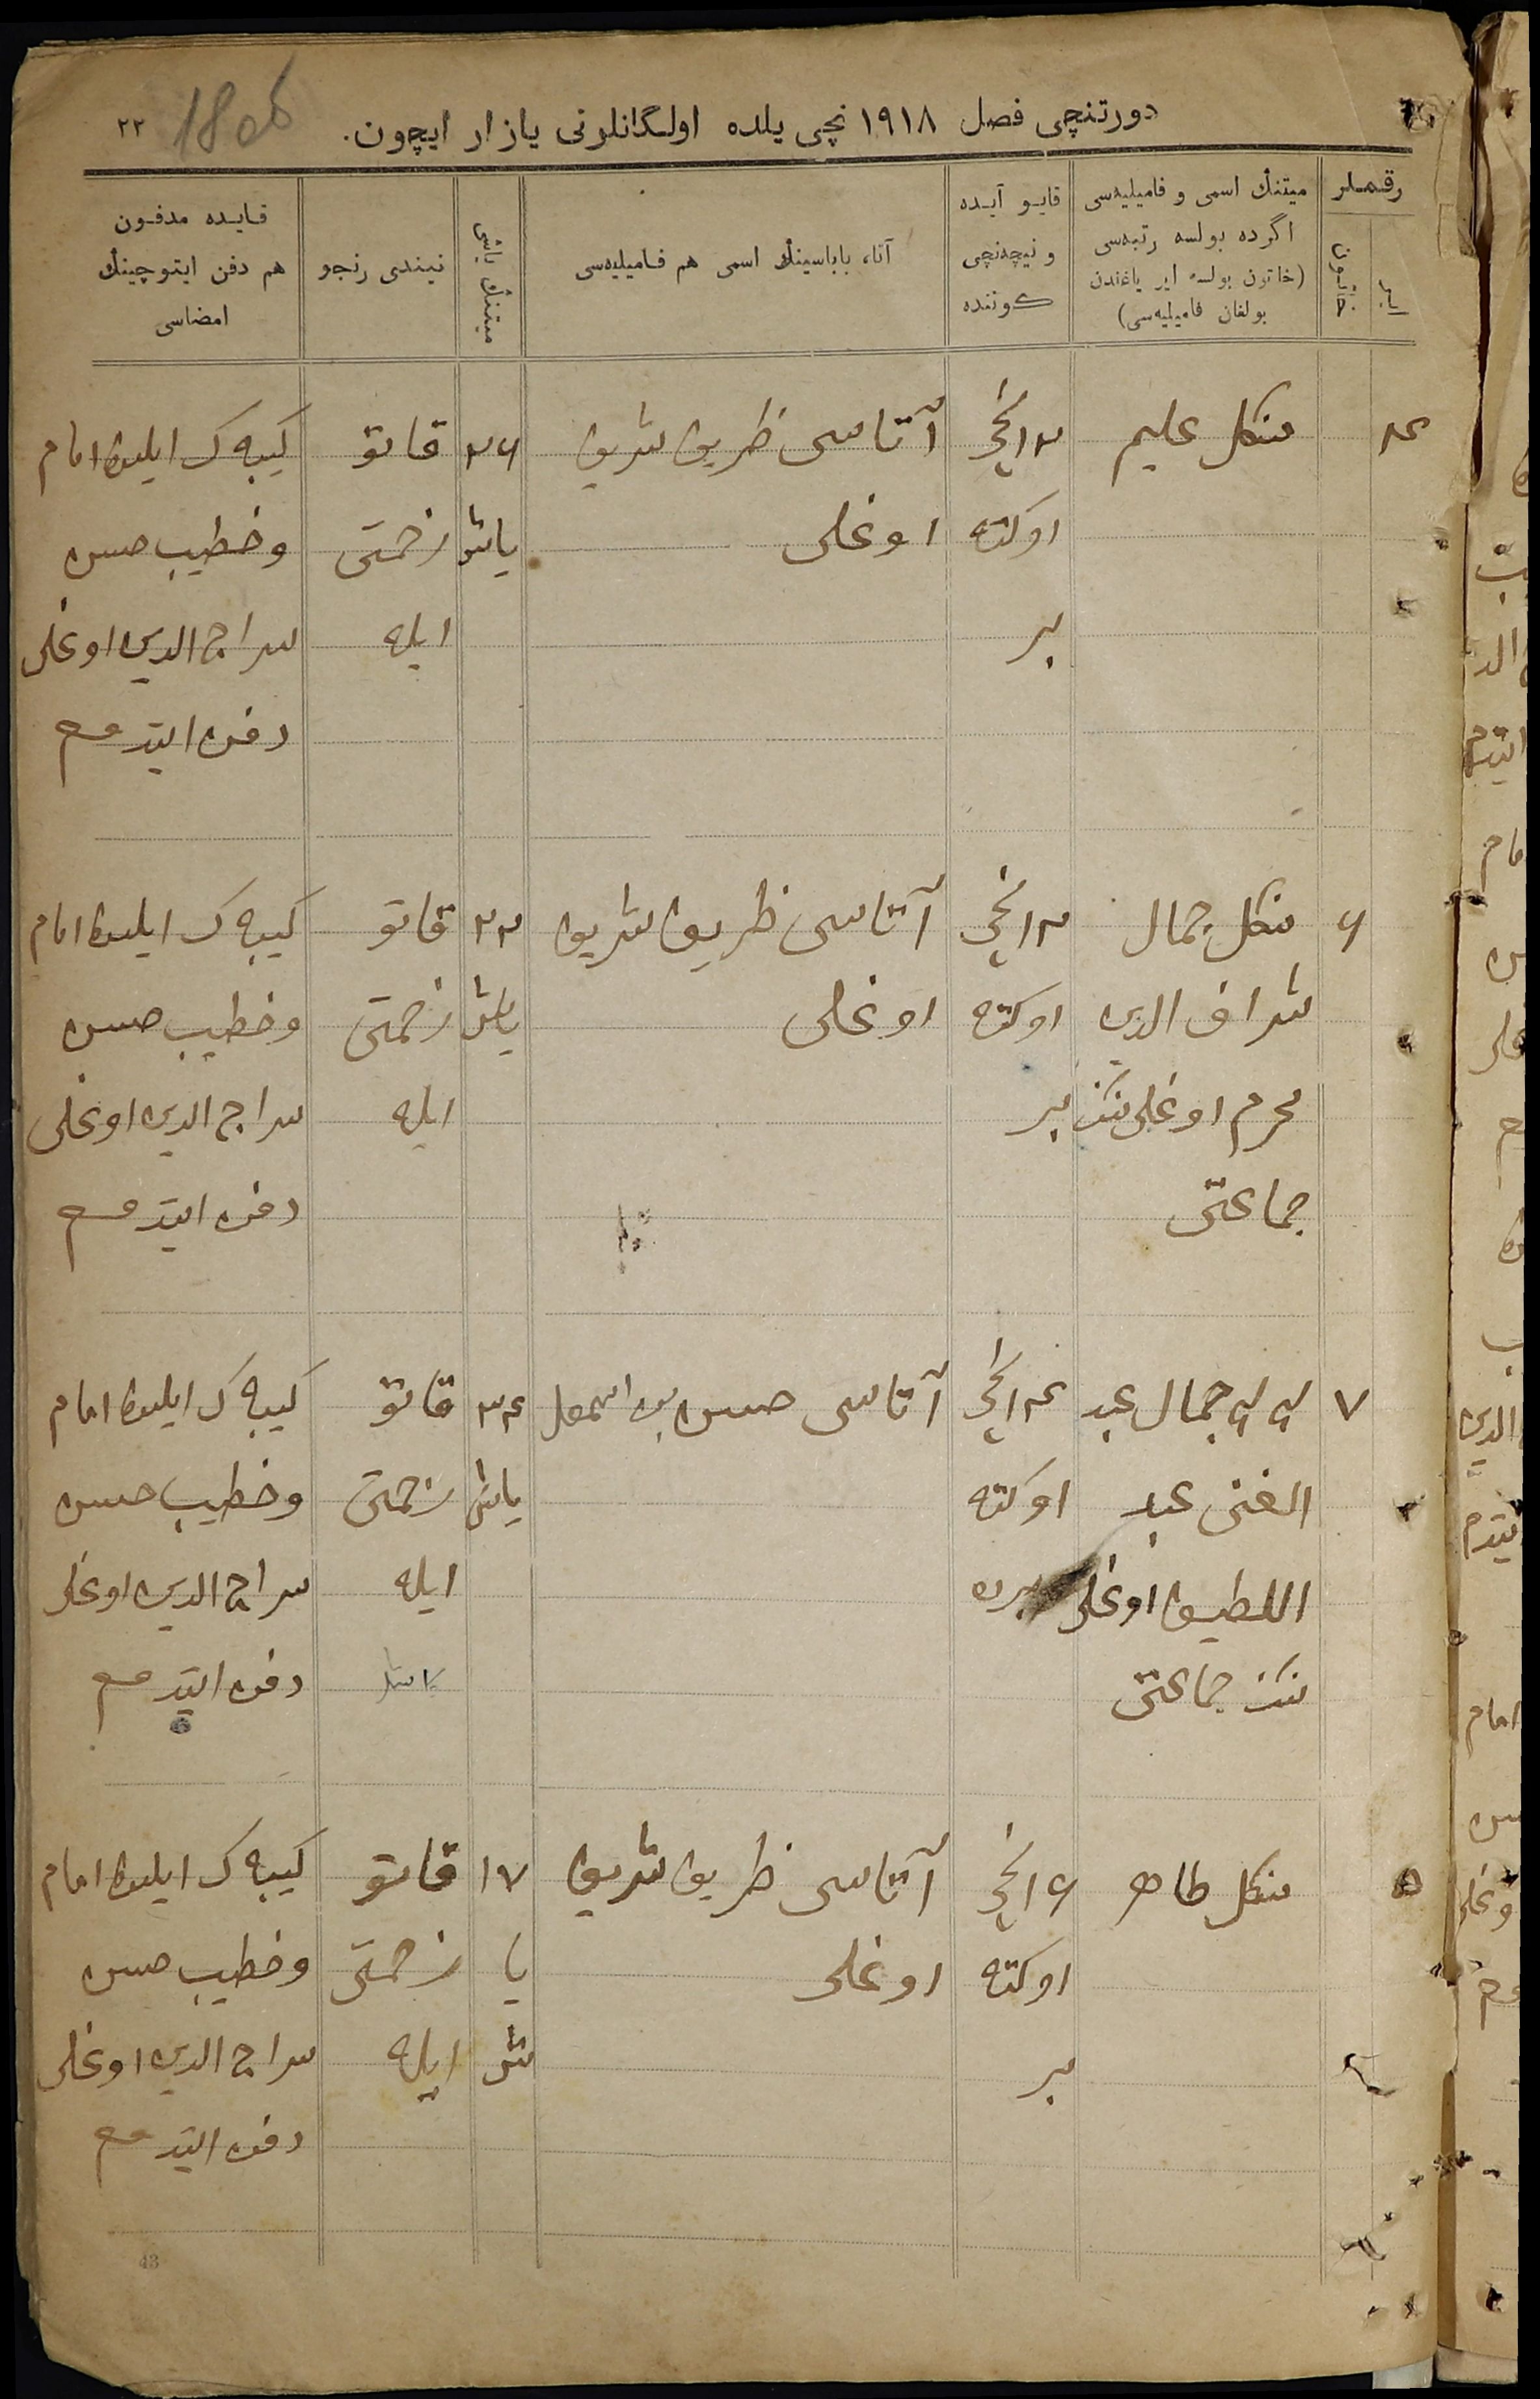 دورتنچی فصل ١٩١٨ نچی یلده اولگانلرنی یازار ایچون.
٢٢
رقملر
میتنڭ اسمی و فامیلیەسی
اگرده بولسه رتبەسی
(خاتون بولسه ایر یاغندن
بولغان فامیلیەسی)
قایو آیده
و نیچەنچی
كوننده
آنا، باباسینڭ اسمی هم فامیلیەسی
میتنڭ یاشی
نیندی رنجو
قایده مدفون
هم دفن ایتوچینڭ
امضاسی
٤
منكل علیم
١٣نچی
اوكتە
بر
آتاسی ظریف شریف
اوغلی
٢٦
یاش
قاتو
زحمتی
ایله
كیبەك ایلینڭ امام
وخطیب حسن
سراج الدین اوغلی
دفن ایتدم
٦
منكل جمال
شراف الدین
محرم اوغلی ننڭ
جماعتی
١٣نچی
اوكتە
بر
آتاسی ظریف شریف
اوغلی
٢٣
یاش
قاتو
زحمتی
ایله
كیبەك ایلینڭ امام
وخطیب حسن
سراج الدین اوغلی
دفن ایتدم
٧
جمال عبد
الغنی عبد
اللطیف اوغلی
ننڭ جماعتی
١٤نچی
اوكتە
آتاسی حسن بن اسمعیل
٣٤
یاش
قاتو
زحمتی
ایله
كیبەك ایلینڭ امام
وخطیب حسن
سراج الدین اوغلی
دفن ایتدم
٥
منكل طاهر
١٦نچی
اوكتە
بر
آتاسی ظریف شریف
اوغلی
١٧
یا
ش
قاتو
زحمتی
ایله
كیبەك ایلینڭ امام
وخطیب حسن
سراج الدین اوغلی
دفن ایتدم
43